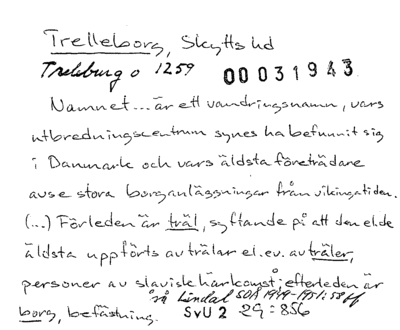 Trelleborg, Skytts hd
Trelleburg o 1259 00031943
Namnet ... är ett vandringsnamn, vars
utbredningscentrum synes ha befunnit sig
i Danmark och vars äldsta företrädare
avse stora borganläggningar från vikingatiden.
(...) Förleden är träl, syftande på att den el. de
äldsta uppförts av trälar el. ev. av träler,
personer av slavisk härkomst; efterleden är
så Lindal SOÅ 1949-1951: 58 ff
borg, befästning. SvU 2 29:856